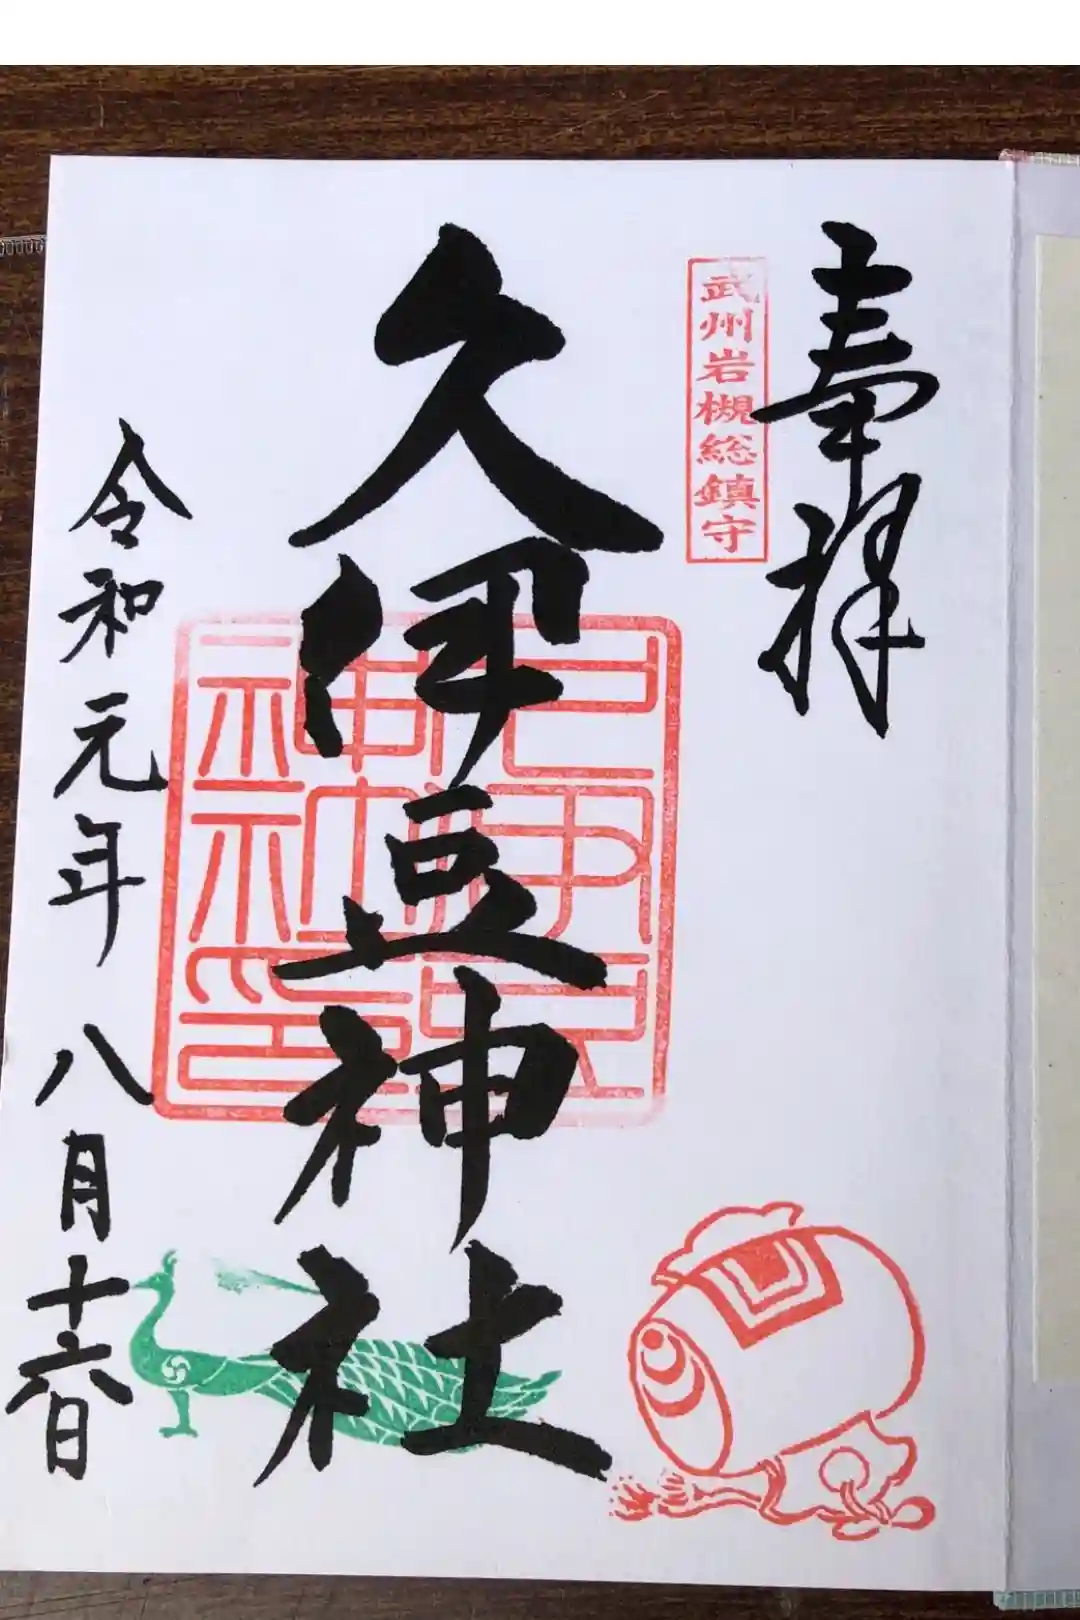 奉拝
武州岩槻総鎮守
久伊豆神社
久伊豆
神社印
令和元年 八月十六日